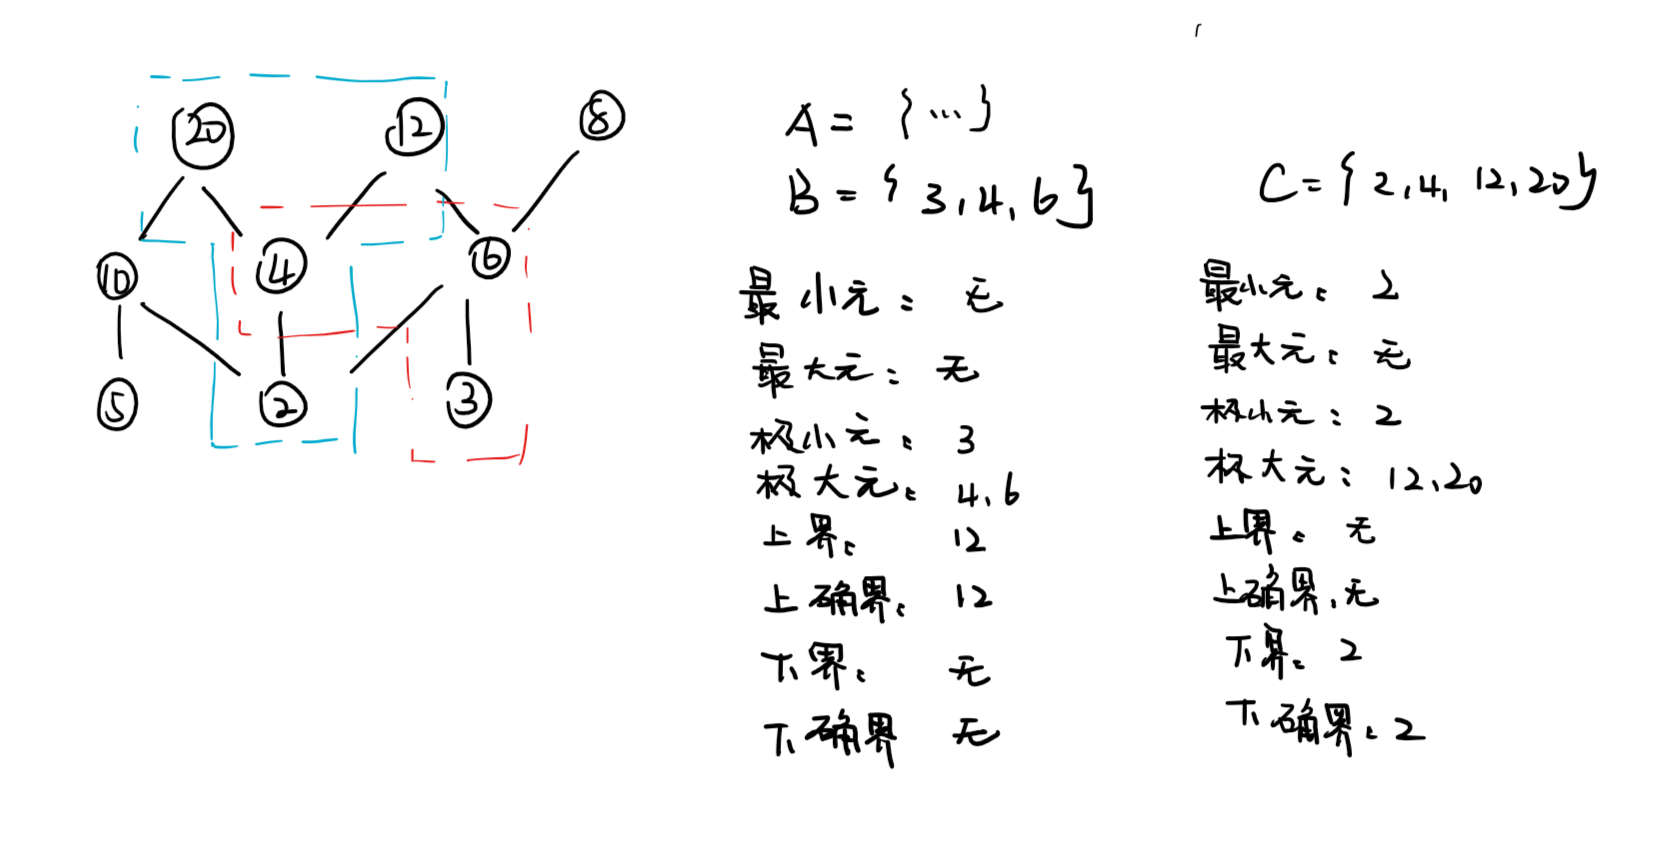 20 12 8
10 4 6
5 2 3
A = {...}
B = {3,4,6}
最小元: 无
最大元: 无
极小元: 3
极大元: 4、6
上界: 12
上确界: 12
下界: 无
下确界 无
C = {2,4,12,20}
最小元: 2
最大元: 无
极小元: 2
极大元: 12、20
上界: 无
上确界: 无
下界: 2
下确界: 2